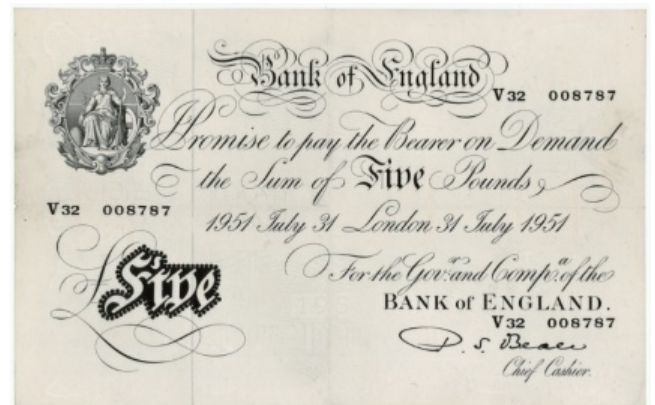 Bank of England
V32 008787
I Promise to pay the Bearer on Demand
the Sum of Five Pounds
V32 008787
1951 July 31 London 31 July 1951
Five
For the Gov.r and Comp.a of the
BANK of ENGLAND.
V32 008787
P. S. Beale
Chief Cashier.